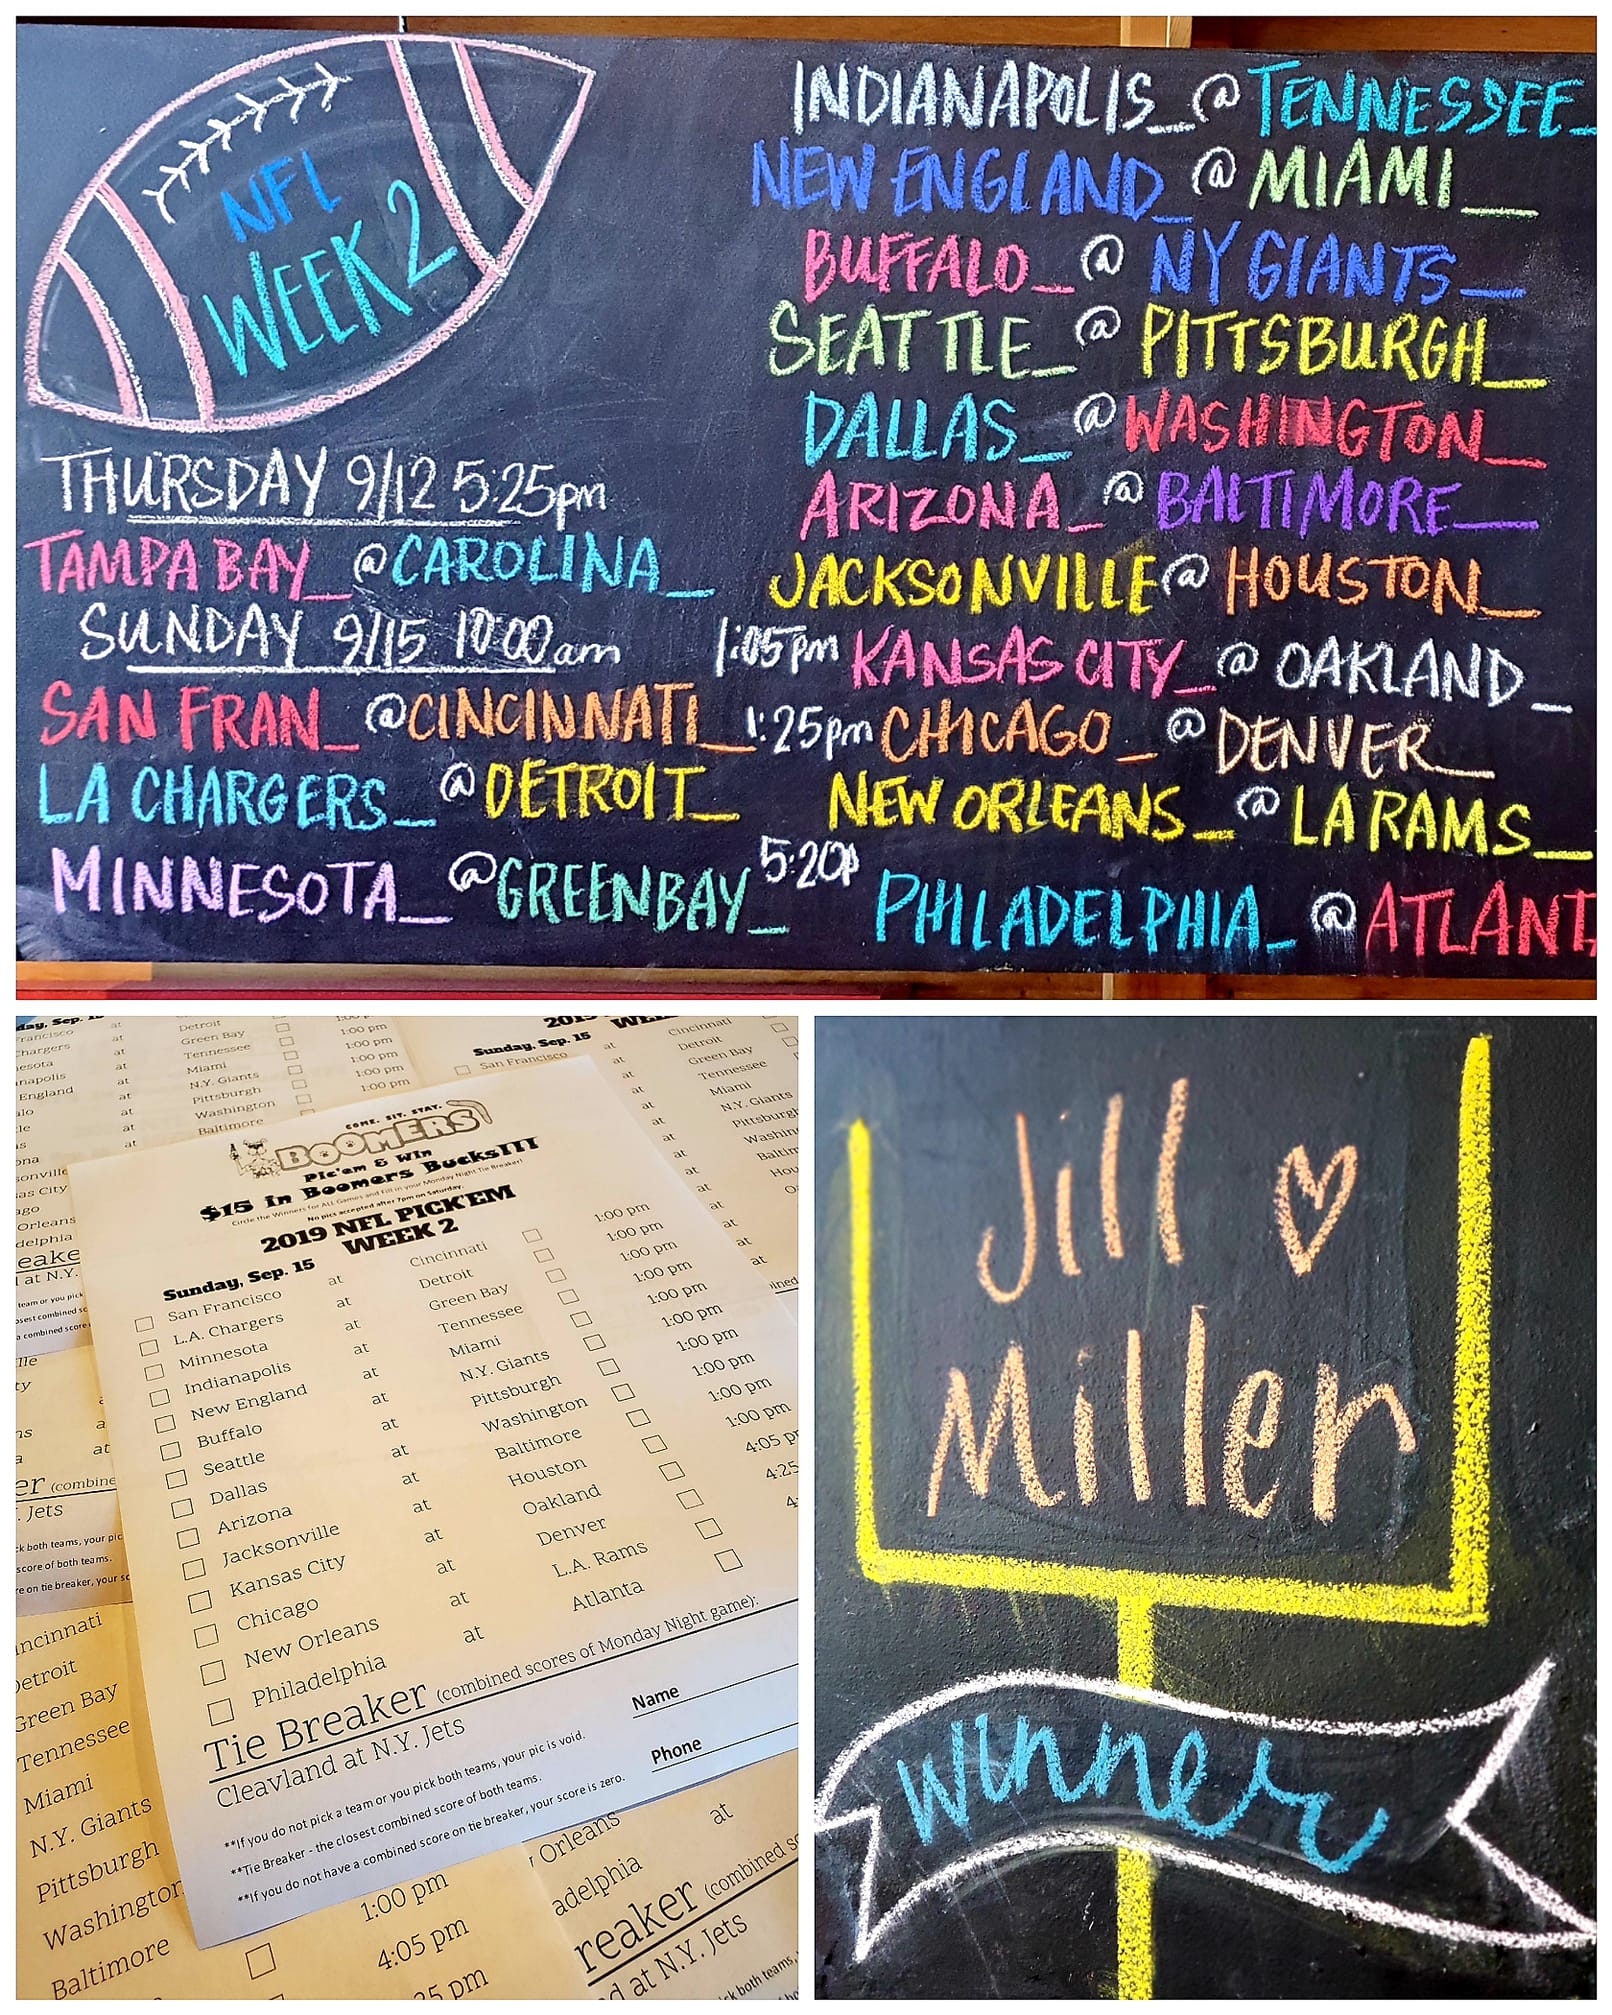 NFL
WEEK 2
THURSDAY 9/12 5:25pm
TAMPA BAY_ @ CAROLINA_
SUNDAY 9/15 10:00am
SAN FRAN_ @ CINCINNATI_
LA CHARGERS_ @ DETROIT_
MINNESOTA_ @ GREENBAY_
INDIANAPOLIS_ @ TENNESSEE_
NEW ENGLAND_ @ MIAMI_
BUFFALO_ @ NY GIANTS_
SEATTLE_ @ PITTSBURGH_
DALLAS_ @ WASHINGTON_
ARIZONA_ @ BALTIMORE_
JACKSONVILLE @ HOUSTON_
1:05pm KANSAS CITY_ @ OAKLAND_
1:25pm CHICAGO_ @ DENVER_
NEW ORLEANS_ @ LA RAMS_
5:20p PHILADELPHIA_ @ ATLANT
COME. SIT. STAY.
BOOMERS
Pic'em & Win
$15 in Boomers Bucks!!!
Circle the Winners for ALL Games and Fill in your Monday Night Tie Breaker!
No pics accepted after 7pm on Saturday.
2019 NFL PICK'EM
WEEK 2
Sunday, Sep. 15
San Francisco at Cincinnati 1:00 pm
L.A. Chargers at Detroit 1:00 pm
Minnesota at Green Bay 1:00 pm
Indianapolis at Tennessee 1:00 pm
New England at Miami 1:00 pm
Buffalo at N.Y. Giants 1:00 pm
Seattle at Pittsburgh 1:00 pm
Dallas at Washington 1:00 pm
Arizona at Baltimore 1:00 pm
Jacksonville at Houston 4:05 p
Kansas City at Oakland 4:25
Chicago at Denver 4
New Orleans at L.A. Rams
Philadelphia at Atlanta
Tie Breaker (combined scores of Monday Night game):
Cleavland at N.Y. Jets
Name
Phone
**If you do not pick a team or you pick both teams, your pic is void.
**Tie Breaker - the closest combined score of both teams.
**If you do not have a combined score on tie breaker, your score is zero.
Jill ♡
Miller
Winner